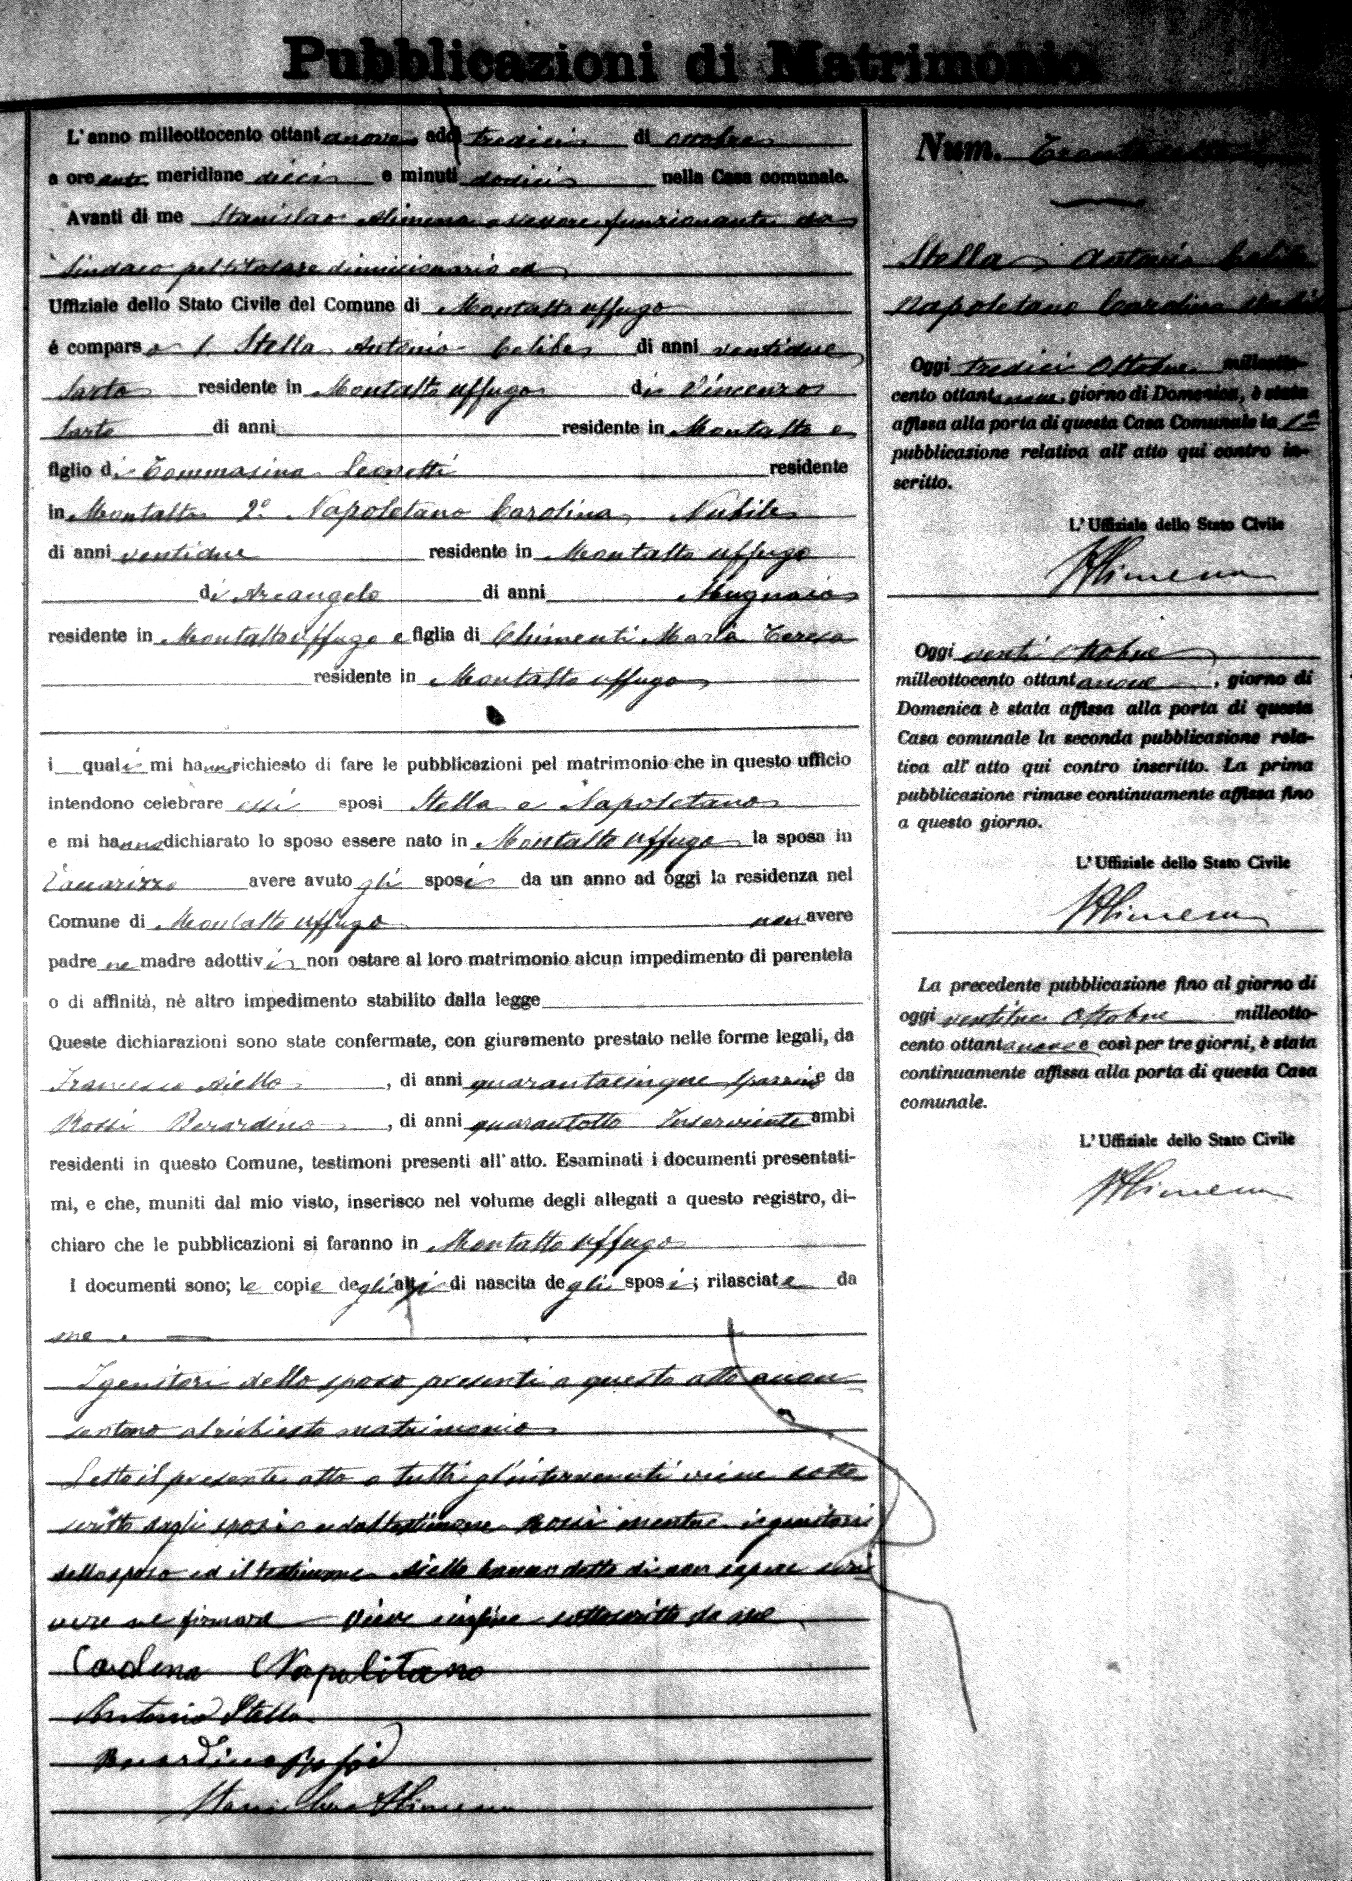 Pubblicazioni di Matrimonio
L'anno milleottocento ottantanove addì tredici di ottobre
a ore ante meridiane dieci e minuti dodici nella Casa comunale.
Avanti di me Stanislao Alimena assessore funzionante da
Sindaco pel titolare dimissionario ed
Uffiziale dello Stato Civile del Comune di Montalto Uffugo
è comparso 1. Stella Antonio Celibe di anni ventidue
Sarto residente in Montalto Uffugo di Vincenzo
Sarto di anni residente in Montalto e
figlio di Tommasina Leonetti residente
in Montalto 2.º Napoletano Carolina Nubile
di anni ventidue residente in Montalto Uffugo
di Arcangelo di anni Mugnaio
residente in Montalto Uffugo e figlia di Chimenti Maria Teresa
residente in Montalto Uffugo
i quali mi hanno richiesto di fare le pubblicazioni pel matrimonio che in questo ufficio
intendono celebrare essi sposi Stella e Napoletano
e mi hanno dichiarato lo sposo essere nato in Montalto Uffugo la sposa in
avere avuto gli sposi da un anno ad oggi la residenza nel
Comune di Montalto Uffugo non avere
padre ne madre adottivi non ostare al loro matrimonio alcun impedimento di parentela
o di affinità, nè altro impedimento stabilito dalla legge
Queste dichiarazioni sono state confermate, con giuramento prestato nelle forme legali, da
Francesco Aiello, di anni quarantacinque e da
Rossi Berardino, di anni quarantotto Inserviente ambi
residenti in questo Comune, testimoni presenti all'atto. Esaminati i documenti presentati-
mi, e che, muniti dal mio visto, inserisco nel volume degli allegati a questo registro, di-
chiaro che le pubblicazioni si faranno in Montalto Uffugo
I documenti sono; le copie degli atti di nascita degli sposi; rilasciate da
me.
I genitori dello sposo presenti a questo atto
sentono al richiesto matrimonio
Letto il presente atto a tutti gl'intervenuti viene sotto
scritto dagli sposi e dal testimone Rossi mentre i genitori
dello sposo ed il testimone Aiello hanno detto di non sapere scri
vere ne firmare Viene infine sottoscritto da me
Carolina Napolitano
Antonio Stella
Berardino Rossi
Stanislao Alimena
Num.
Stella Antonio Celibe
Napoletano Carolina Nubile
Oggi tredici Ottobre milleotto-
cento ottantanove, giorno di Domenica, è stata
affissa alla porta di questa Casa Comunale la 1ª
pubblicazione relativa all'atto qui contro in-
scritto.
L'Uffiziale dello Stato Civile
SAlimena
Oggi venti ottobre
milleottocento ottantanove, giorno di
Domenica è stata affissa alla porta di questa
Casa comunale la seconda pubblicazione rela-
tiva all'atto qui contro inscritto. La prima
pubblicazione rimase continuamente affissa fino
a questo giorno.
L'Uffiziale dello Stato Civile
SAlimena
La precedente pubblicazione fino al giorno di
oggi ventitre Ottobre milleotto-
cento ottantanove così per tre giorni, è stata
continuamente affissa alla porta di questa Casa
comunale.
L'Uffiziale dello Stato Civile
SAlimena